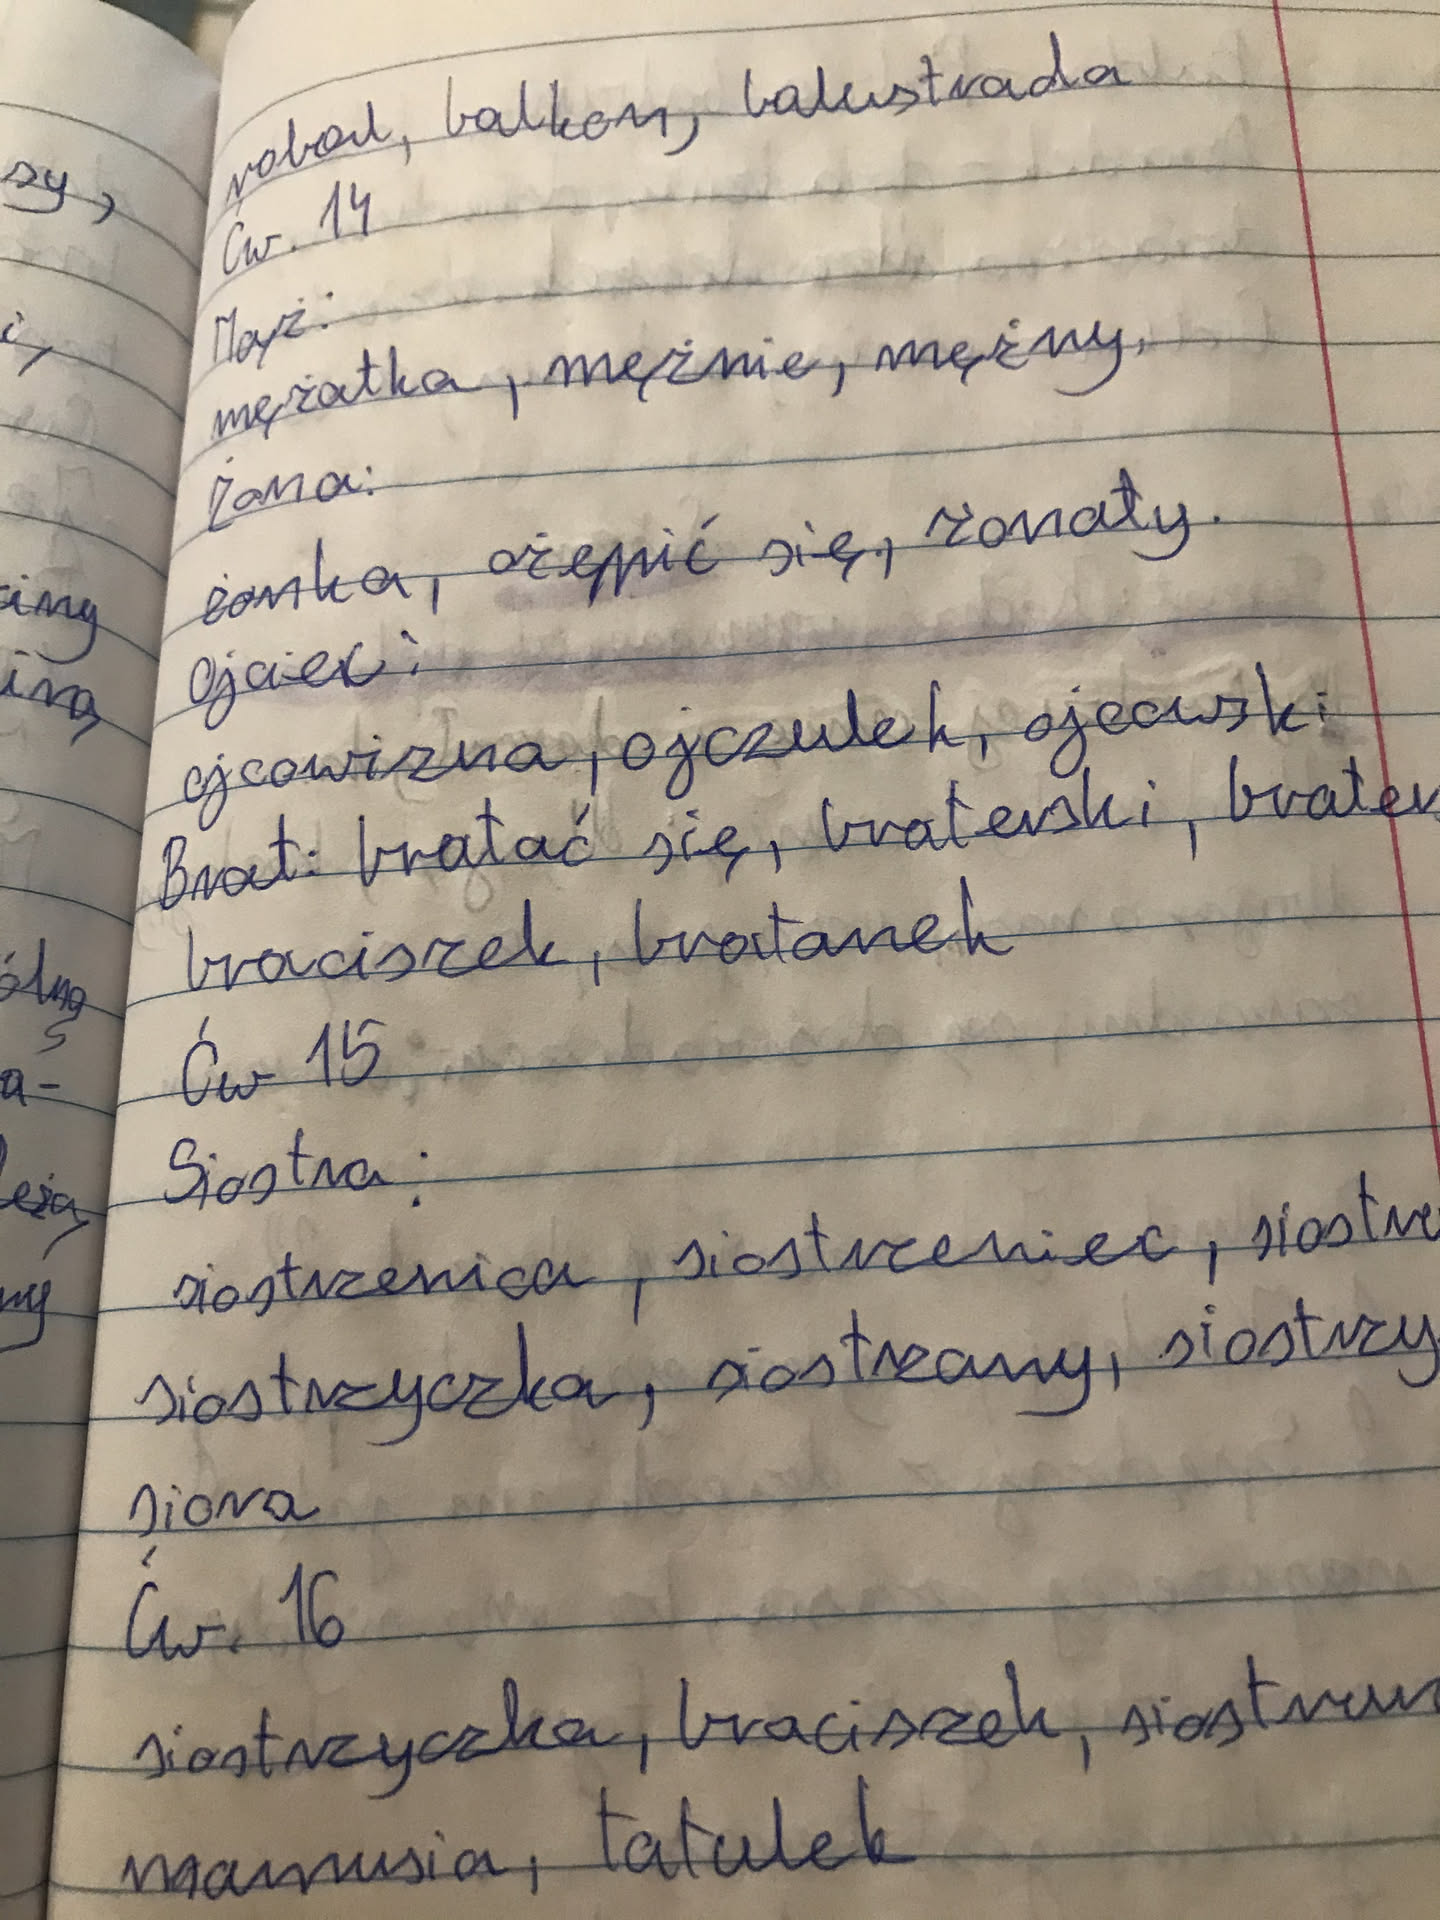 balkon, balustrada
Ćw. 14
Mąż:
mężatka, mężnie, mężny,
Żona:
żonka, ożenić się, żonaty.
Ojciec:
ojcowizna, ojczulek, ojcowski
Brat: bratać się, braterski,
braciszek, bratanek
Ćw 15
Siostra:
siostrzenica, siostrzeniec,
siostrzyczka, siostrzany,
siora
Ćw. 16
siostrzyczka, braciszek,
mamusia, tatulek